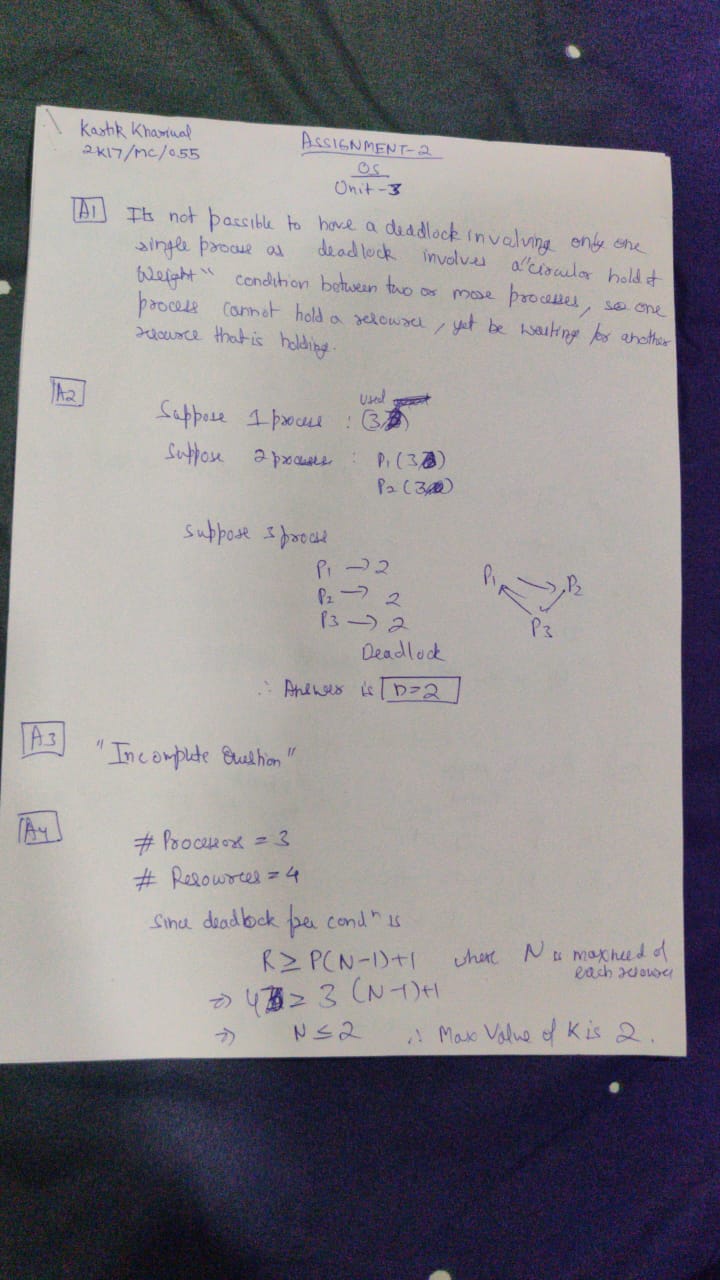 Kartik Khariwal
2K17/MC/055
ASSIGNMENT-2
OS
Unit-3
A1 Its not possible to have a deadlock involving only one
single process as deadlock involves a "circular hold &
Weight" condition between two or more processes, so one
process cannot hold a resource, yet be waiting for another
resource that is holding.
A2
used
Suppose 1 process : (3,
Suppose 2 processes : P1 (3,
P2 (3,
Suppose 3 process
P1 → 2
P2 → 2
P3 → 2
P1 P2
P3
Deadlock
∴ Answer is D=2
A3 "Incomplete Question"
A4
# Processors = 3
# Resources = 4
Since deadlock per condn is
R ≥ P(N-1)+1 where N is max need of
each resource
⇒ 4 ≥ 3 (N-1)+1
⇒ N ≤ 2 ∴ Max Value of K is 2.